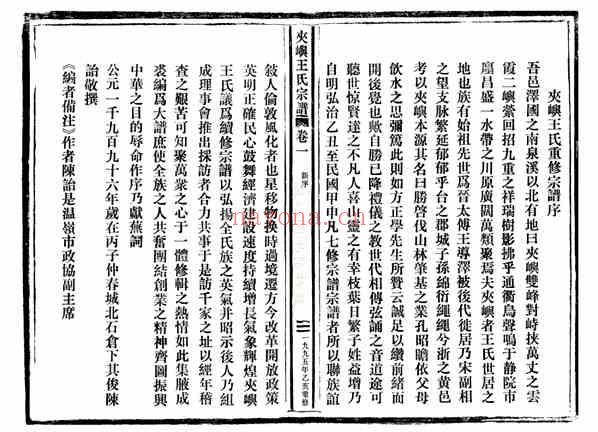 夾嶼王氏重修宗譜序
吾邑澤國之南泉溪以北有地曰夾嶼雙峰對峙挾萬丈之雲
霞二嶼縈回招九重之祥瑞樹影拂乎通衢烏聲鳴于靜院市
廛昌盛一水帶之川原廣闊萬類聚焉夫夾嶼者王氏世居之
地也族有始祖先世爲晉太傅王導澤被後代徙居乃宋副相
之望支脈繁延郁郁乎台之郡城子孫綿衍繩繩今浙之黃邑
考以夾嶼本源其名曰勝啓伐山林肇基之業孔昭瞻依父母
飲水之思彌篤此則如方正學先生所贊云誠足以纘前緒而
開後覺也歟自勝已降禮儀之教世代相傳弦誦之音道途可
聽世惊賢達之不凡人喜山靈之有幸枝葉日繁子姓益增乃
自明弘治乙丑至民國甲申凡七修宗譜宗譜者所以聯族誼
夾嶼王氏宗譜
卷一
新序
一九九五年乙亥重修
敍人倫敦風化者也星移物換時過境遷方今改革開放政策
英明正確民心鼓舞經濟建設速度持續增長氣象輝煌夾嶼
王氏議爲續修宗譜以弘揚全氏族之英氣并昭示後人乃組
成理事會推出採訪者合力共事于是訪千家之址以經年稽
查之艱苦可知聚萬衆之心于一體修輯之熱情如此集腋成
裘編爲大譜庶使全族之人共奮團結創業之精神齊圖振興
中華之目的辱命作序乃獻蕪詞
公元一千九百九十六年歲在丙子仲春城北石倉下其俊陳
詒敬撰
《編者備注》作者陳詒是溫嶺市政協副主席